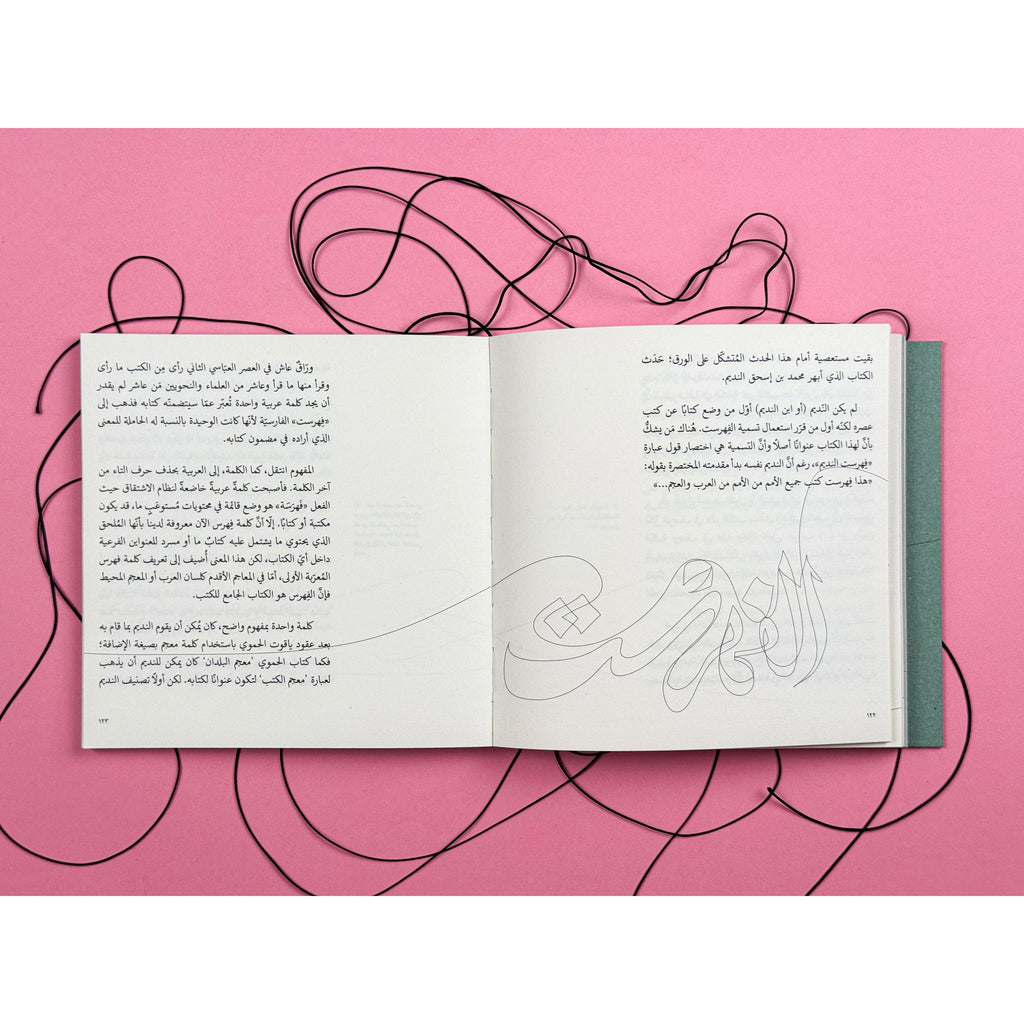 بقيت مستعصية أمام هذا الحدث المُتشكّل على الورق؛ حَدَث
الكتاب الذي أبهر محمد بن إسحق النديم.
لم يكن النّديم (أو ابن النديم) أوّل من وضع كتابًا عن كتب
عصره لكنّه أول من قرّر استعمال تسمية الفِهرست. هُناك مَن يشكُّ
بأنَّ لهذا الكتاب عنوانًا أصلًا وأنَّ التسمية هي اختصار قول عبارة
«فِهرست النديم»، رغم أنَّ النديم نفسه بدأ مقدمته المختصرة بقوله:
«هذا فِهرست كتب جميع الأمم من الأمم من العرب والعجم...»
الفهرست
١٢٢
ورّاقٌ عاش في العصر العبّاسي الثاني رأى مِن الكتب ما رأى
وقرأ منها ما قرأ وعاشر من العلماء والنحويين مَن عاشر لم يقدر
أن يجد كلمة عربية واحدة تُعبّر عمّا سيتضمنّه كتابه فذهب إلى
«فِهرست» الفارسيّة لأنّها كانت الوحيدة بالنسبة له الحاملة للمعنى
الذي أراده في مضمون كتابه.
المفهوم انتقل، كما الكلمة، إلى العربية بحذف حرف التاء من
آخر الكلمة. فأصبحت كلمةً عربيةً خاضعةً لنظام الاشتقاق حيث
الفعل «فَهرَسَة» هو وضع قائمة في محتويات مُستوعَبٍ ما، قد يكون
مكتبة أو كتابًا. إلّا أنَّ كلمة فِهرس الآن معروفة لدينا بأنّها المُلحق
الذي يحتوي ما يشتمل عليه كتابٌ ما أو مسرد للعناوين الفرعية
داخل أيّ الكتاب، لكن هذا المعنى أُضيف إلى تعريف كلمة فهرس
المُعرّبة الأولى، أمّا في المعاجم الأقدم كلسان العرب أو المعجم المحيط
فإنَّ الفِهرس هو الكتاب الجامع للكتب.
كلمة واحدة بمفهوم واضح، كان يُمكن أن يقوم النديم بما قام به
بعد عقود ياقوت الحموي باستخدام كلمة معجم بصيغة الإضافة؛
فكما كتاب الحموي ‘معجم البلدان’ كان يمكن للنديم أن يذهب
لعبارة ‘معجم الكتب’ لتكون عنوانًا لكتابه. لكن أولًا تصنيف النديم
١٢٣